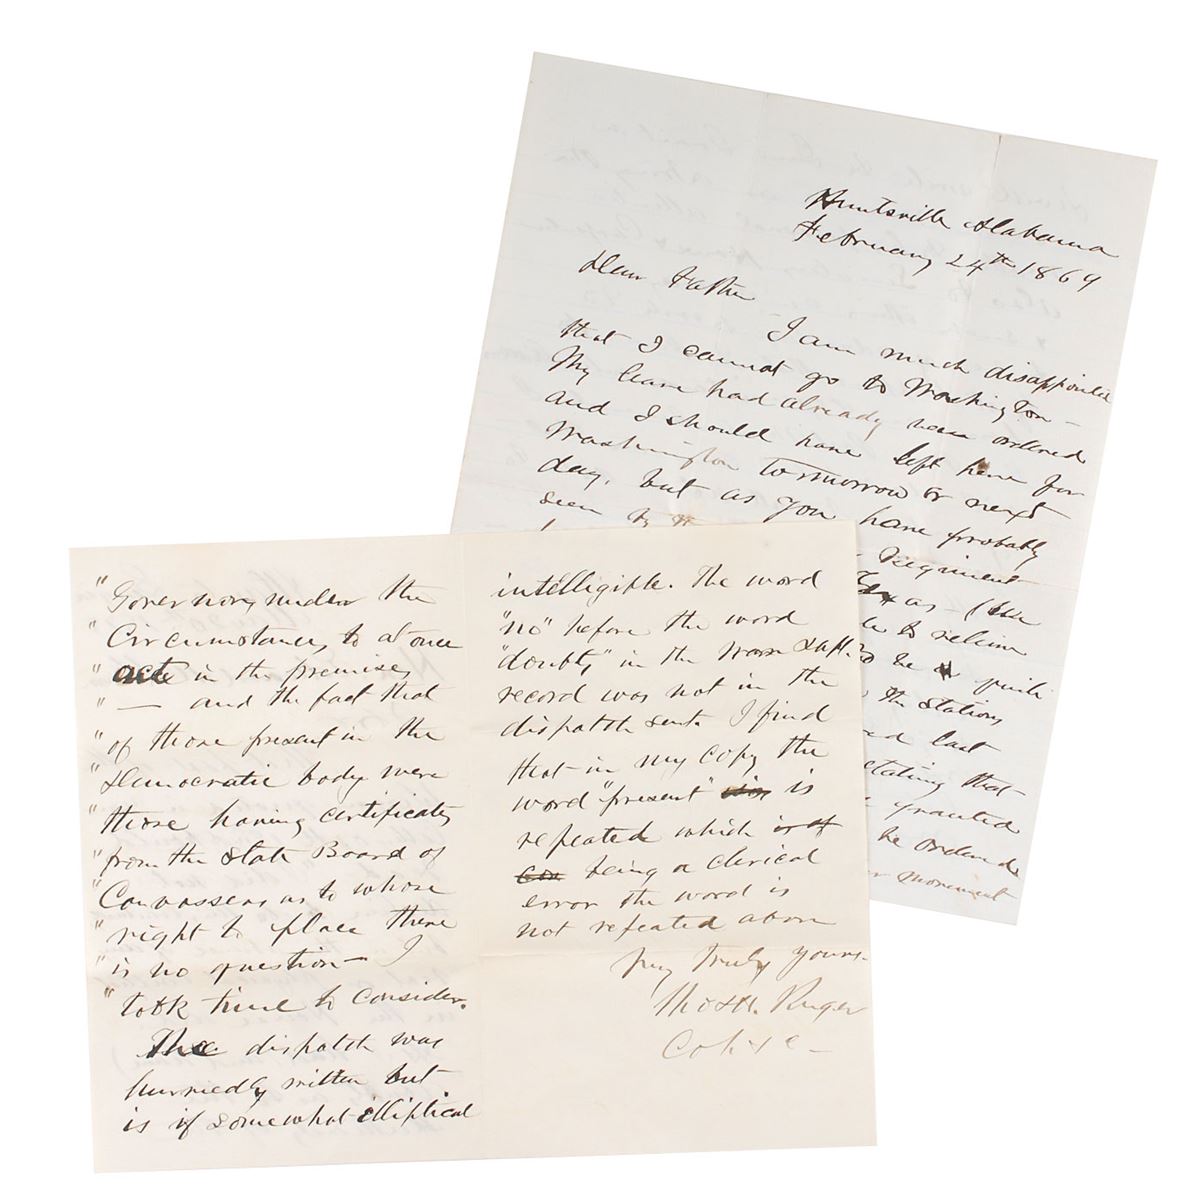 Huntsville Alabama
February 24th 1869
Dear Father
I am much disappointed
that I cannot go to Washington —
My leave had already been ordered
and I should have left here for
Washington tomorrow or next
day, but as you have probably
seen
Regiment
Texas — (the
to relieve
be a quiet
the stations
last
stating that
granted
be ordered
moment
"Governor, under the
"Circumstances, to at once
"act in the premises,
"— and the fact that
"of those present in the
"Democratic body were
"those having certificates
"from the State Board of
"Canvassers as to whose
"right to places there
"is no question — I
"took time to consider.
The dispatch was
hurriedly written but
is if somewhat elliptical
intelligible. The word
"no" before the word
"doubt," in the
record was not in the
dispatch sent. I find
that in my copy the
word "present" is
repeated which is of
being a clerical
error the word is
not repeated above
Very truly yours.
Thos H. Ruger
Col &c —